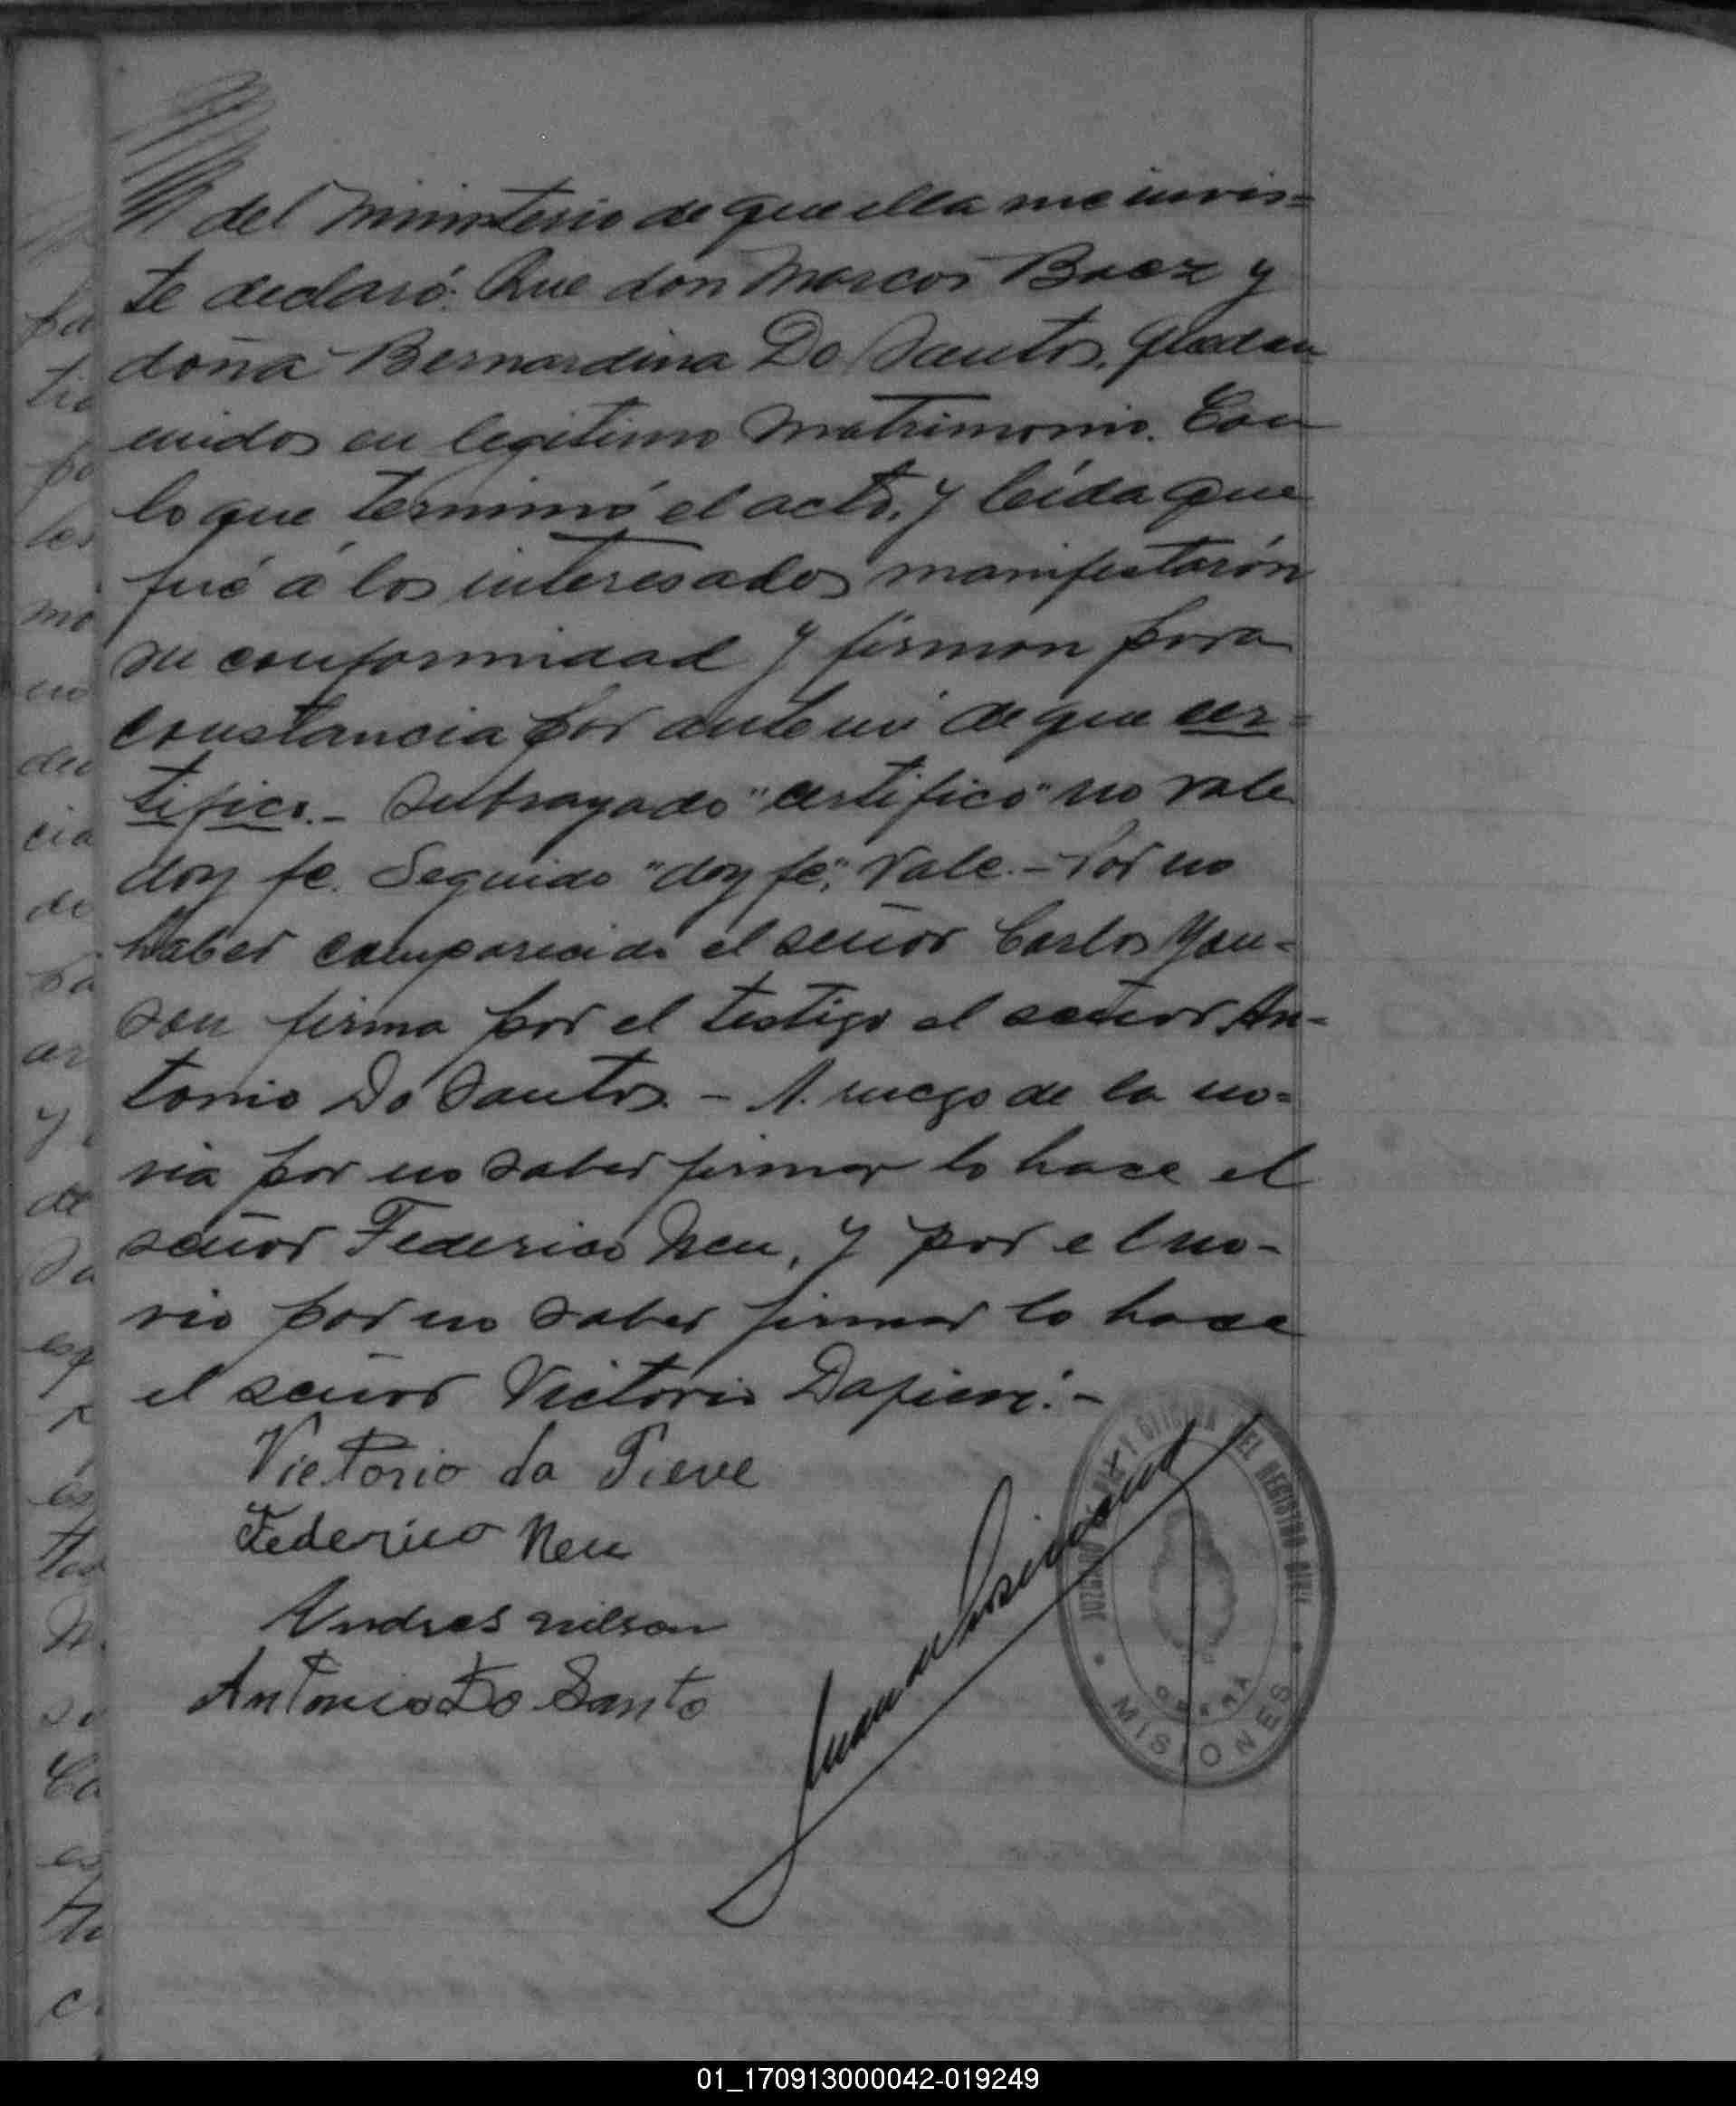 del Ministerio de que ella me invis=
te declaró: Que don Marcos Baez y
doña Bernardina Do Santos, quedan
unidos en legitimo Matrimonio. Con
lo que terminó el acto, y leída que
fué á los interesados manifestarón
su conformidad y firman para
constancia por ante mi de que cer=
tifico.- Subrayado "certifico" no vale
doy fe. Seguido "doy fe", Vale.- Por no
haber comparecido el señor Carlos Yan=
son firma por el testigo el señor An=
tonio Do Santos. - A ruego de la no=
via por no saber firmar lo hace el
señor Federico Neu, y por el no-
vio por no saber firmar lo hace
el señor Victorio Dapieve.-
Victorio da Pieve
Federico Neu
Andres Nilson
Antonio Do Santo
JUZGADO DE PAZ Y OFICINA DEL REGISTRO CIVIL
OBERA
MISIONES
01_170913000042-019249